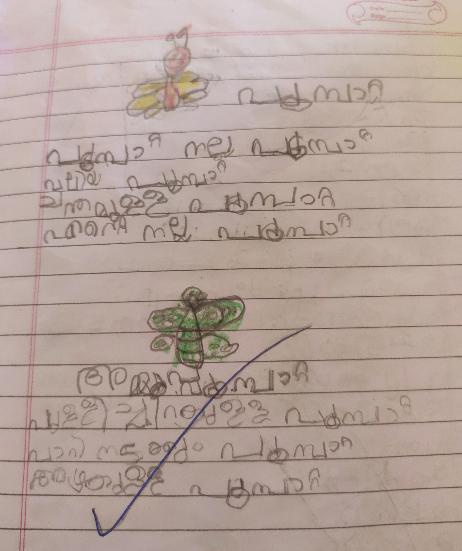 പൂമ്പാറ്റ
പൂമ്പാറ്റ നല്ല പൂമ്പാറ്റ
വലിയ പൂമ്പാറ്റ
ചന്തമുള്ള പൂമ്പാറ്റ
എന്റെ നല്ല പൂമ്പാറ്റ
പൂമ്പാറ്റ
പുള്ളി ചിറകുള്ള പൂമ്പാറ്റ
പാറി നടക്കും പൂമ്പാറ്റ
അഴകുള്ള പൂമ്പാറ്റ